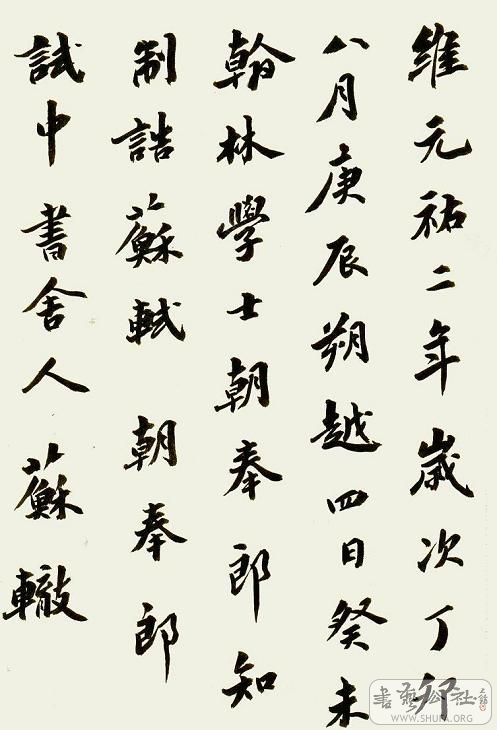 維元祐二年歲次丁卯
八月庚辰朔越四日癸未
翰林學士朝奉郎知
制誥蘇軾朝奉郎
試中書舍人蘇轍
書藝公社
WWW.SHUFA.ORG